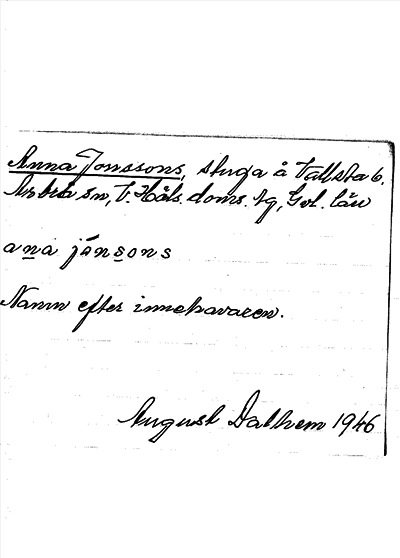 Anna Jonssons, stuga å Tallsta 6.
Arbrå sn, V. Häls. doms. tg, Gvl. län
ana jånsons
Namn efter innehavaren.
August Dalhem 1946